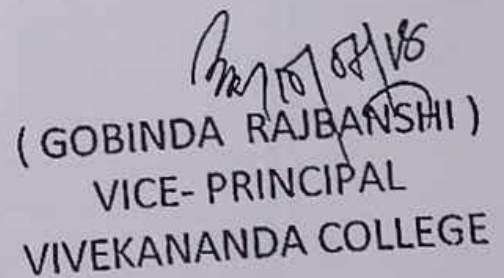 ( GOBINDA RAJBANSHI )
VICE- PRINCIPAL
VIVEKANANDA COLLEGE